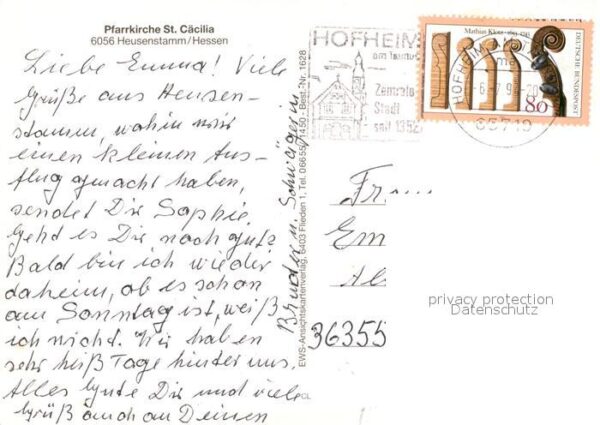 Pfarrkirche St. Cäcilia
6056 Heusenstamm/Hessen
Liebe Emma! Viele
Grüße aus Heusen-
stamm, wohin wir
einen kleinen Aus-
flug gemacht haben,
sendet Dir Sophie.
Geht es Dir noch gut?
Bald bin ich wieder
daheim, ob es schon
am Sonntag ist, weiß
ich nicht. Wir haben
sehr heiß Tage hinter uns.
Alles Gute Dir und viele
Grüß auch an Deinen
Bruder u. Schwägerin
EWS-Ansichtskartenverlag, 6403 Flieden 1, Tel. 06655/1450 - Best.-Nr. 1628
HOFHEIM
am Taunus
Zentrale
Stadt
seit 1352
HOFHEIM
65719
Mathias Klotz 1653-1743
DEUTSCHE BUNDESPOST
80
Fr
Em
Al
36355
privacy protection
Datenschutz